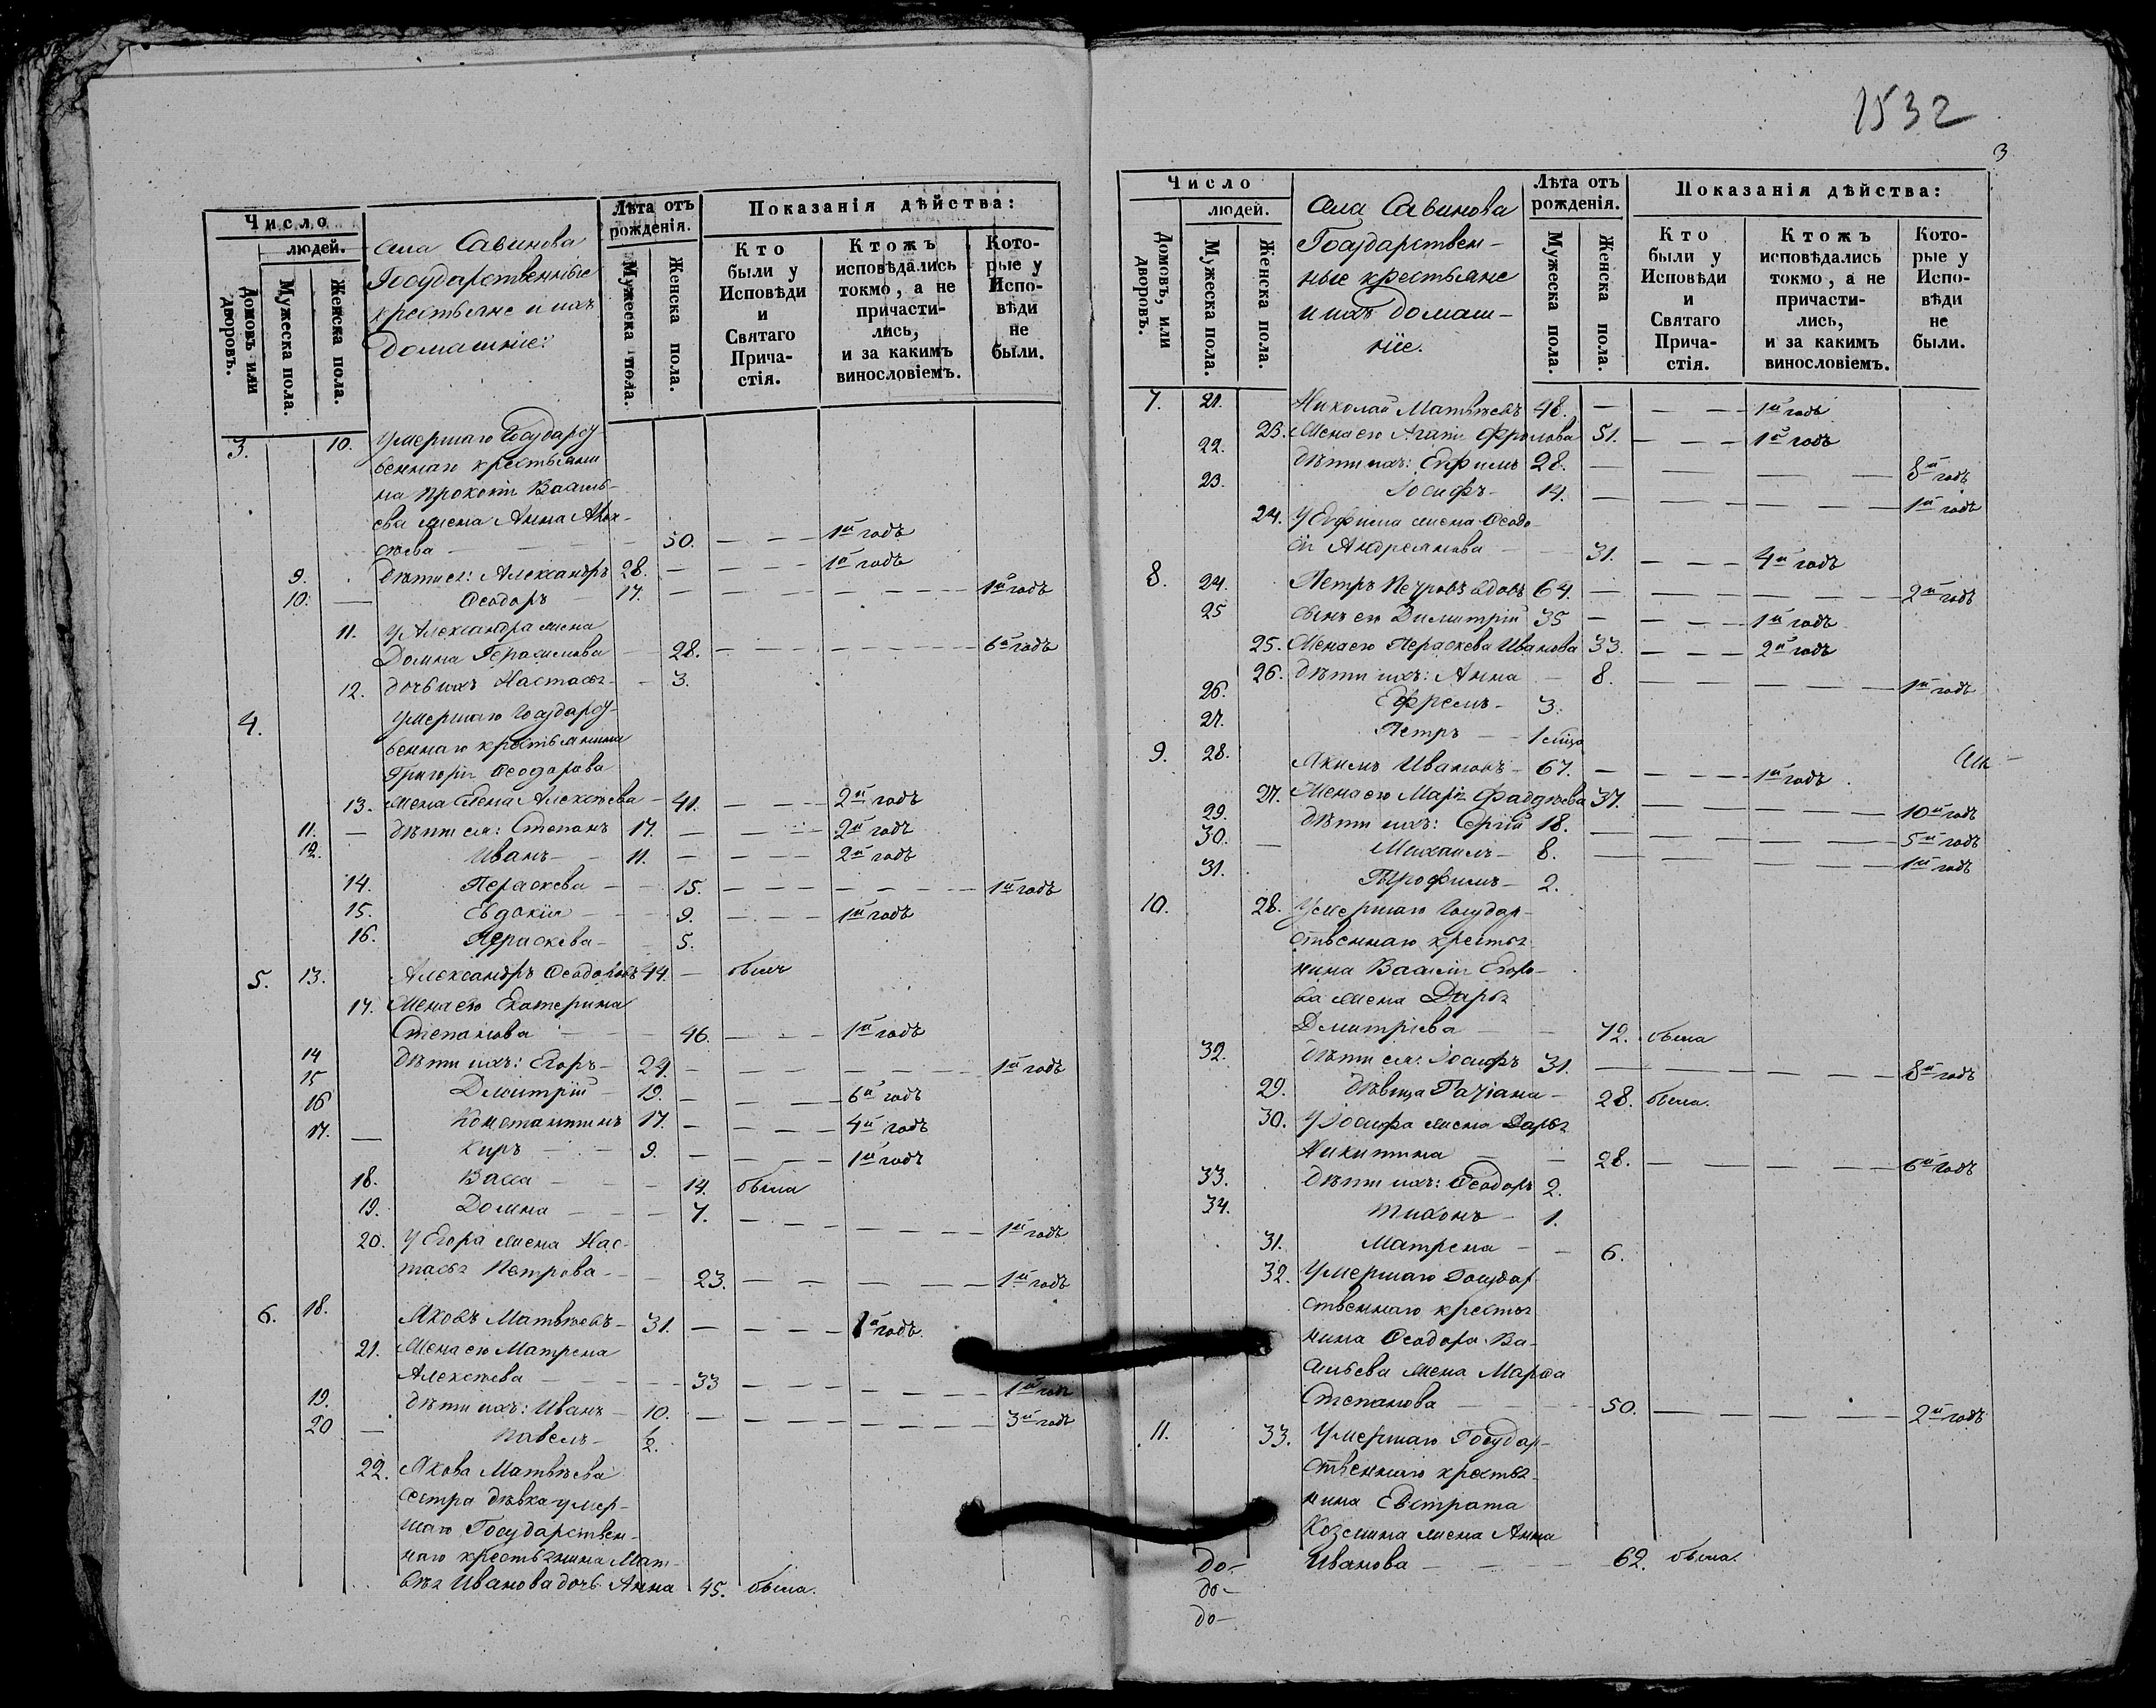 Число
людей.
Домовъ или дворовъ.
Мужеска пола.
Женска пола.
села Савинова
Государственные
крестьяне и ихъ
Домашніе:
Лѣта отъ рожденія.
Мужеска пола.
Женска пола.
Показанія дѣйства:
Кто были у Исповѣди и Святаго Прича-стія.
Ктожъ исповѣдались токмо, а не причасти-лись, и за какимъ винословіемъ.
Кото-рые у Испо-вѣди не были.
3. 10. Умершаго Государст-
веннаго крестьяни
на Прокопія Василь-
ева жена Анна Алек-
сѣева — 50. — — — 1й годъ
9. Дѣти ея: Александръ 28. — — — — 1й годъ
10. — Ѳеодоръ 17. — — — — — — 1й годъ
11. У Александра жена
Домна Герасимова — 28. — — — — — — 6й годъ
12. дочь ихъ Настасья — 3.
4. Умершаго Государст-
веннаго крестьянина
Григорія Ѳеодорова
13. Жена Елена Алексѣева — 41. — — — 2й годъ
11. — дѣти ея: Степанъ 17. — — — — 2й годъ
12. Иванъ — 11. — — — — 2й годъ
14. Параскева — 15. — — — — — — 1й годъ
15. Евдокія — 9. — — — 1й годъ
16. Параскева — 5.
5. 13. Александръ Ѳеодоровъ 44. — былъ
17. Жена его Екатерина
Степанова — — 46. — — — 1й годъ
14 дѣти ихъ: Егоръ — 24. — — — — — 1й годъ
15 Дмитрій — 19. — — — — 6й годъ
16 Константинъ 17. — — — — 4й годъ
17. — Киръ — — 9. — — — — 1й годъ
18. Васса — — — 14. была
19. Домна — — — 7. — — — — — — 1й годъ
20. У Егора жена Нас-
тасья Петрова — — 23. — — — — — 1й годъ
6. 18. Яковъ Матвѣевъ — 31. — — — — 1й годъ.
21. Жена его Матрена
Алексѣева — — — 33 — — — — — 1й годъ
19. дѣти ихъ: Иванъ — 10. — — — — — — 3й годъ
20 — Павелъ — ½.
22. Якова Матвѣева
сестра дѣвка умер-
шаго Государствен-
наго крестьянина Мат-
вѣя Иванова дочь Анна 45. была.
1532
3
Число
людей.
Домовъ, или дворовъ.
Мужеска пола.
Женска пола.
села Савинова
Государствен-
ные крестьяне
и ихъ домаш-
ніе.
Лѣта отъ рожденія.
Мужеска пола.
Женска пола.
Показанія дѣйства:
Кто были у Исповѣди и Святаго Прича-стія.
Ктожъ исповѣдались токмо, а не причасти-лись, и за какимъ винословіемъ.
Кото-рые у Испо-вѣди не были.
7. 21. Николай Матвѣевъ 48. — — — 1й годъ
23. Жена его Агапія Фролова 51. — — — 1й годъ
22. дѣти ихъ: Евфимъ 28. — — — — — 8й годъ
23. Іосифъ — 14. — — — — — 1й годъ
24. У Евфима жена Ѳеодо-
сія Андреянова — 31. — — — 4й годъ
8. 24. Петръ Петровъ вдовъ 64. — — — — — — 2й годъ
25 сынъ его Димитрій 35 — — — — 1й годъ
25. Жена его Параскева Иванова 33. — — — 2й годъ
26. дѣти ихъ: Анна — 8. — — — — — 1й годъ
26. Ефремъ — 3.
27. Петръ — — 1 мѣсяца
9. 28. Якимъ Ивановъ — 67. — — — — 1й годъ.
27. Жена его Марія Фаддѣева 37. — — — — — 10й годъ
29. дѣти ихъ: Сергій 18. — — — — — — 5й годъ
30. — Михаилъ — 8. — — — — — 1й годъ
31. Трофимъ — 2.
10. 28. Умершаго Государ-
ственнаго крестья-
нина Василія Егоро-
ва жена Дарья
Дмитріева — — 72. была
32. Дѣти ея: Іосифъ 31. — — — — — 8й годъ
29. дѣвица Татіана — 28. была.
30. У Іосифа жена Дарья
Никитина — — 28. — — — — — 6й годъ
33. Дѣти ихъ: Ѳеодоръ 2.
34. Тихонъ — 1.
31. Матрена — — 6.
32. Умершаго Государ-
ственнаго крестья-
нина Ѳеодора Ва-
сильева жена Марѳа
Степанова — — 50. — — — — — 2й годъ
11. 33. Умершаго Государ-
ственнаго крестья-
нина Евстрата
Козмина жена Анна
до- Иванова — — — 62. была.
до-
до-